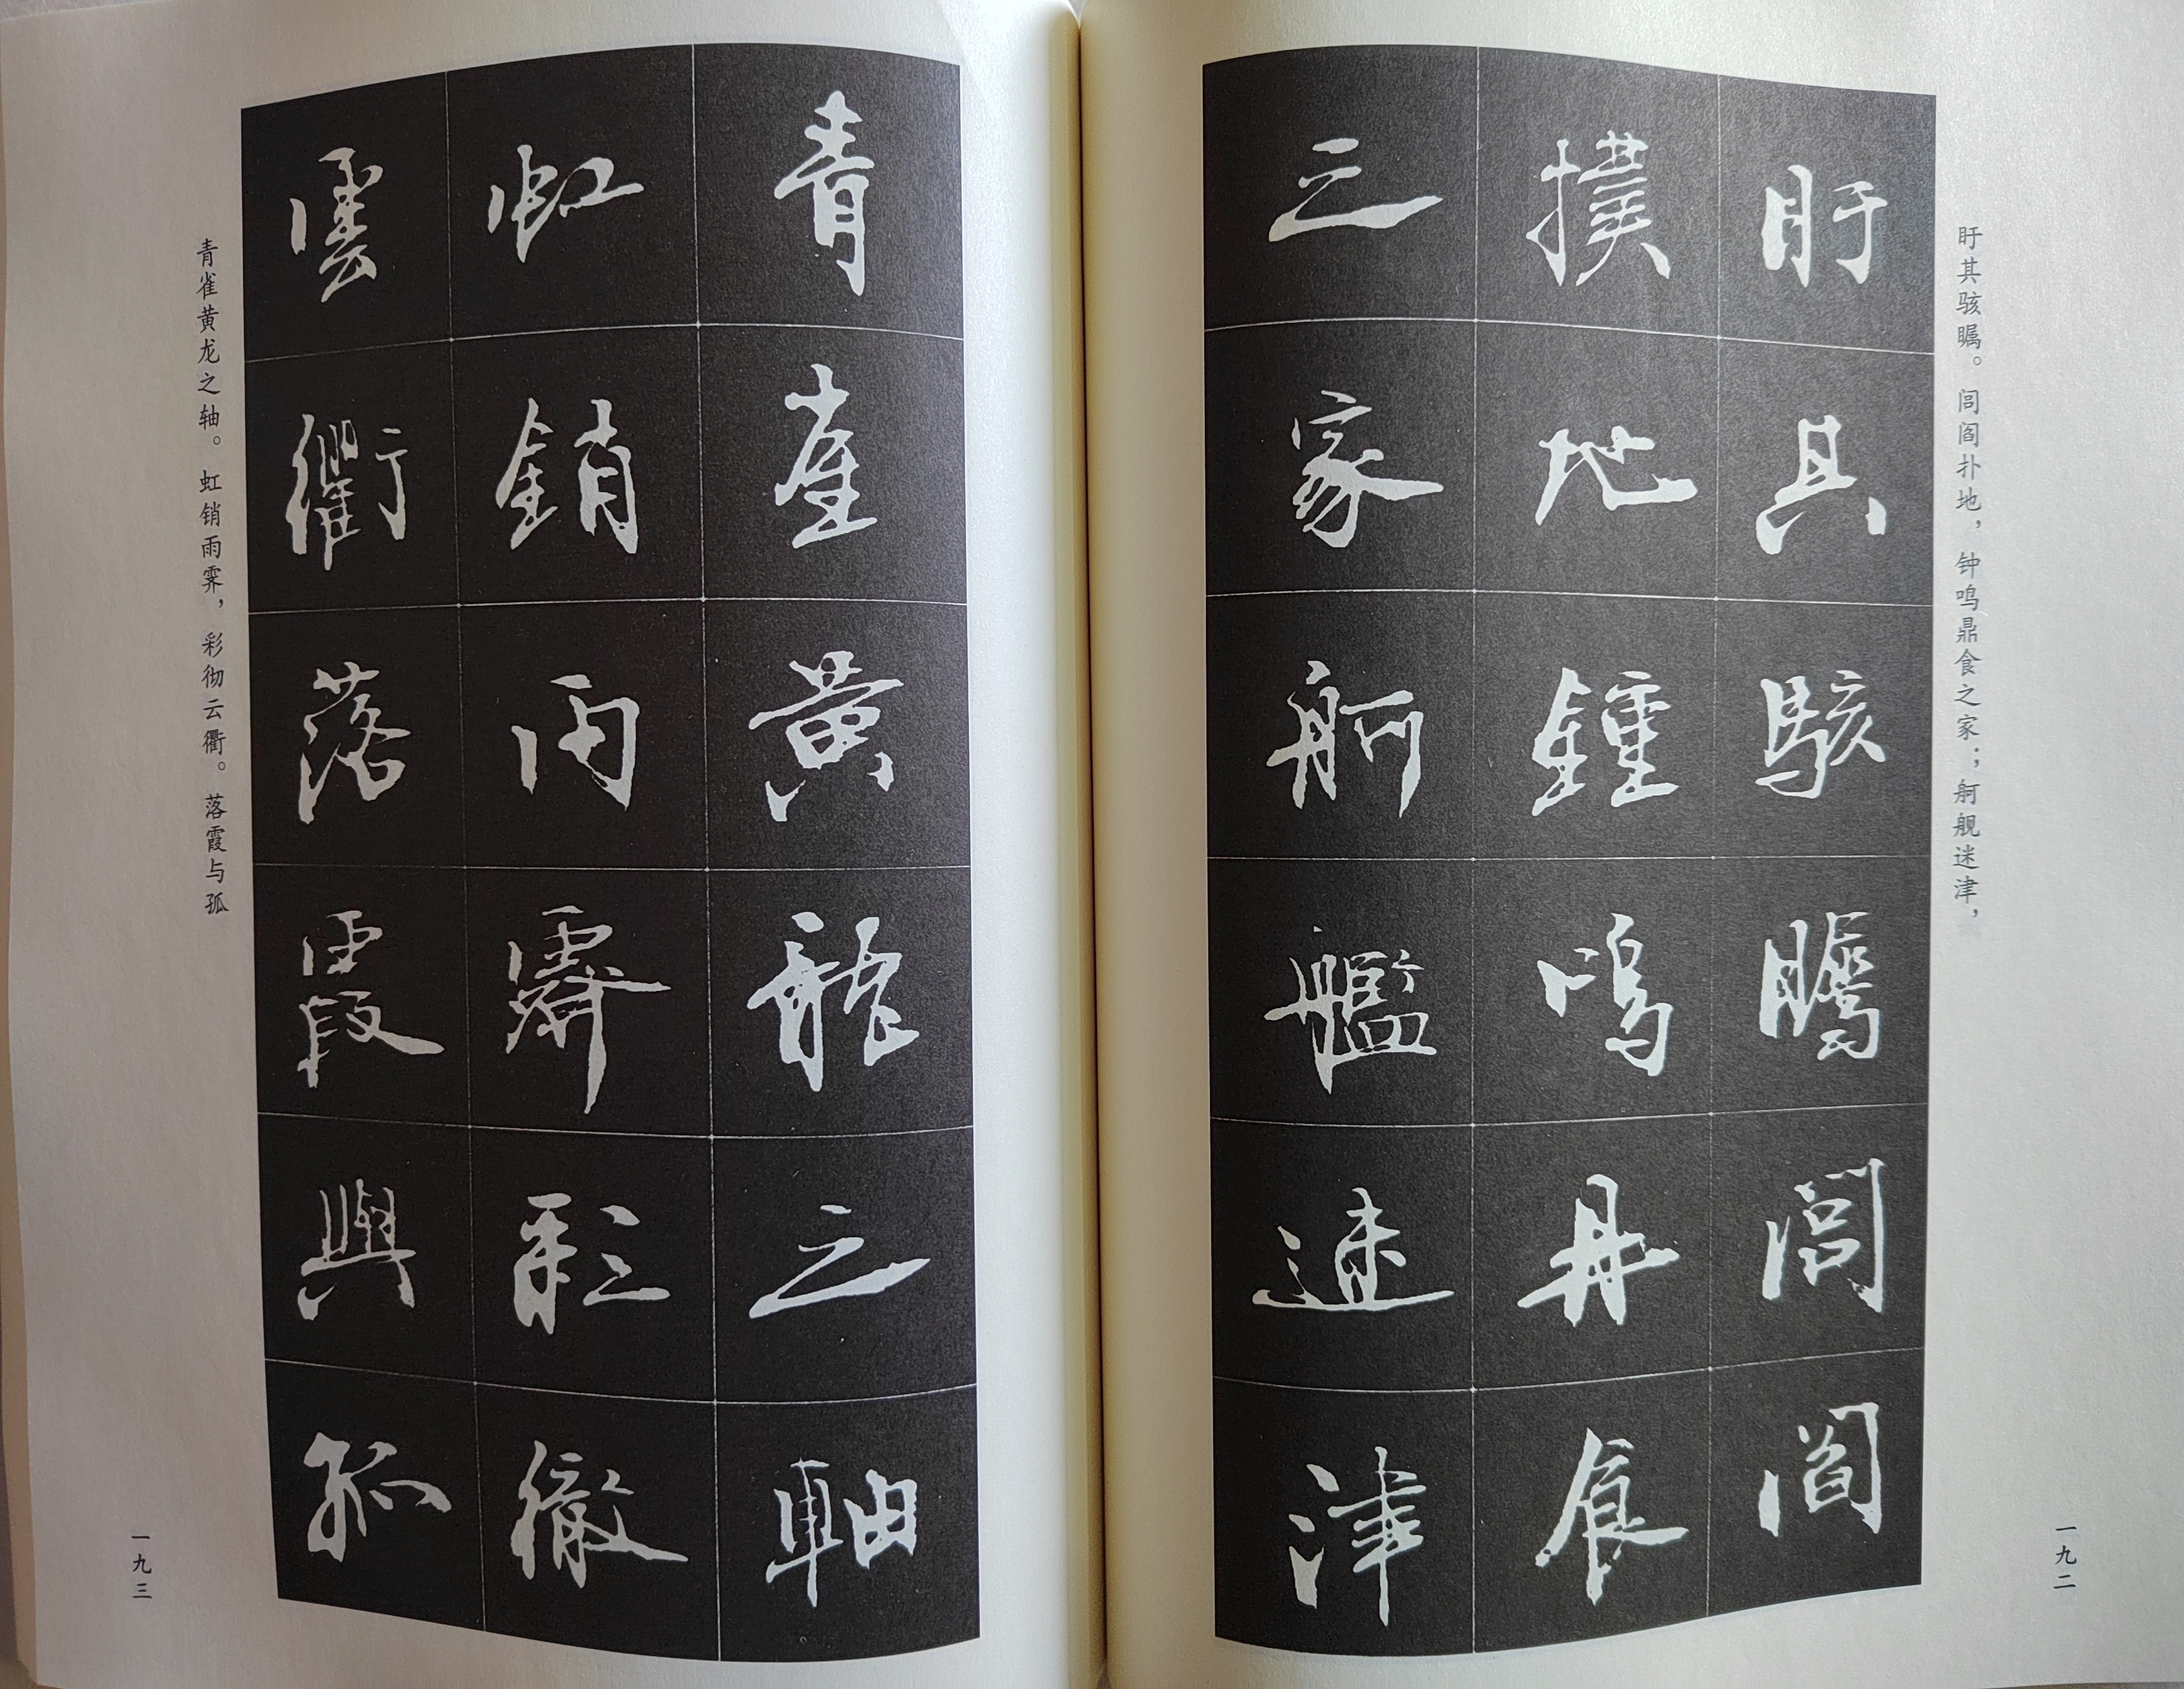 盱其骇瞩。闾阎扑地，钟鸣鼎食之家；舸舰迷津，
盱其駭矚閭閻
撲地鍾鳴鼎食
之家舸艦迷津
一九二
青雀黄龙之轴。虹销雨霁，彩彻云衢。落霞与孤
青雀黄龍之軸
虹銷雨霽彩徹
雲衢落霞與孤
一九三